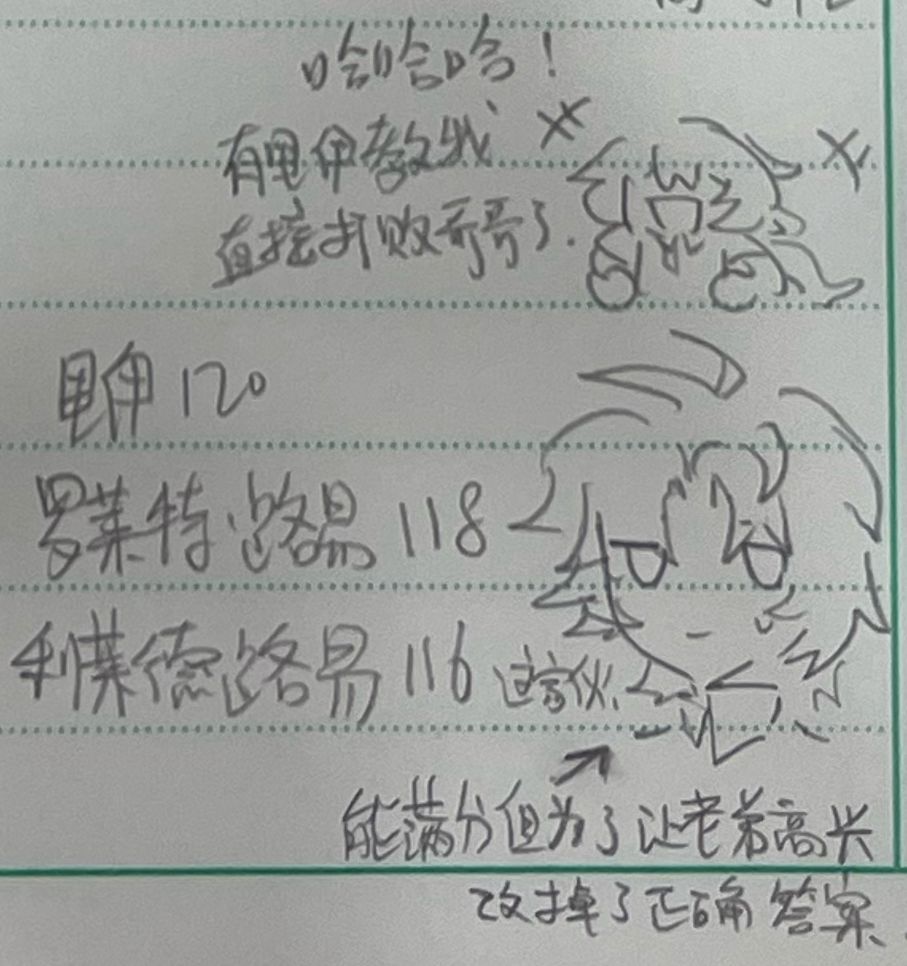 哈哈哈！
有电伊教我
直接打败哥哥了.
电伊 120
罗莱特路易 118
利莱德路易 116 这家伙
能满分但为了让老弟高兴
改掉了正确答案.